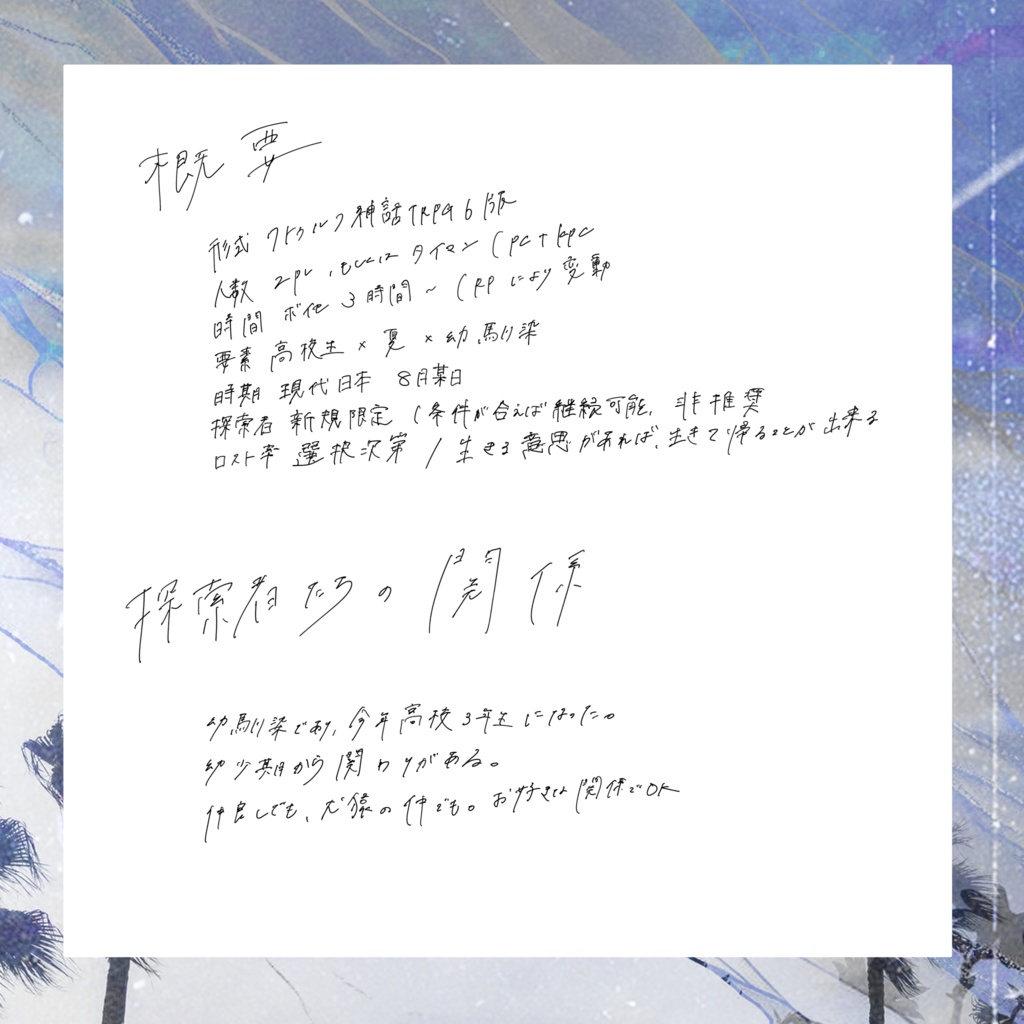 概要
形式 クトゥルフ神話TRPG6版
人数 2PL、もしくは タイマン（PC+KPC
時間 ボイセ 3時間～（RPにより変動
要素 高校生×夏×幼馴染
時期 現代日本 8月某日
探索者 新規限定（条件が合えば継続可能、非推奨
ロスト率 選択次第／生きる意思があれば、生きて帰ることが出来る
探索者たちの関係
幼馴染であり、今年高校3年生になった。
幼少期から関わりがある。
仲良しでも、犬猿の仲でも。お好きな関係でOK